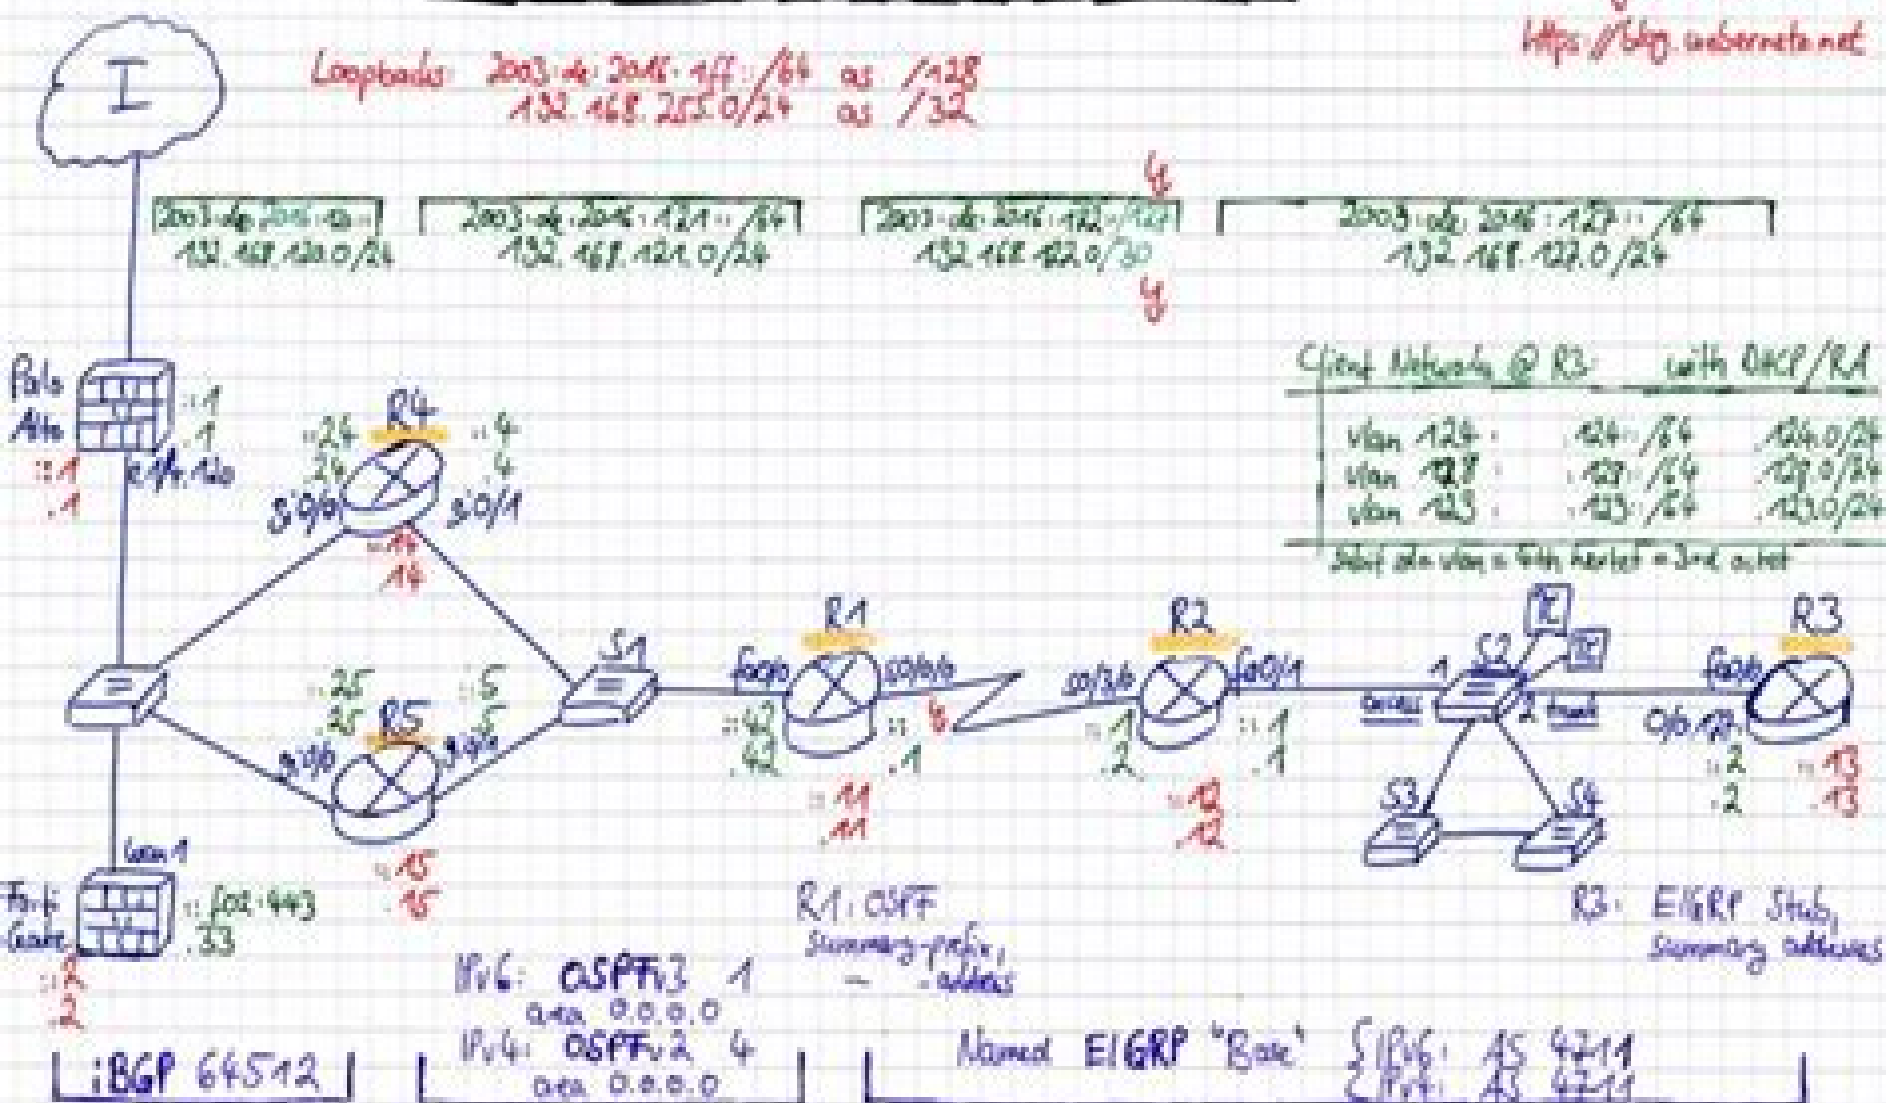 https://blog.webernetz.net
I
Loopbacks: 2003:de:2016:1ff::/64 as /128
192.168.255.0/24 as /32
2003:de:2016:120::
192.168.120.0/24
2003:de:2016:121::/64
192.168.121.0/24
2003:de:2016:122::/127
192.168.122.0/30
2003:de:2016:127::/64
192.168.127.0/24
Client Networks @ R3: with DHCP/RA
vlan 124: :124::/64 .124.0/24
vlan 128: :128::/64 .128.0/24
vlan 123: :123::/64 .123.0/24
vlan = 4th hextet = 3rd octet
Palo
Alto
::1
.1
::1
.1
e1/4.120
R4
::24
.24
::4
.4
gi0/0
gi0/1
::14
.14
::25
.25
R5
::5
.5
gi0/0
::15
.15
S1
R1
fa0/0
s0/0/0
::42
.42
::
.1
::11
.11
R2
s0/3/0
fa0/1
::1
.2
::1
.1
::12
.12
1
access
S2
2 trunk
S3
S4
R3
fa0/0
0/0.127
::2
.2
::13
.13
wan1
Forti
Gate
::f02:443
.33
::2
.2
R1: OSPF
summary-prefix,
- -address
R3: EIGRP Stub,
summary address
iBGP 64512
IPv6: OSPFv3 1
area 0.0.0.0
IPv4: OSPFv2 4
area 0.0.0.0
Named EIGRP "Base" { IPv6: AS 4711
{ IPv4: AS 4711